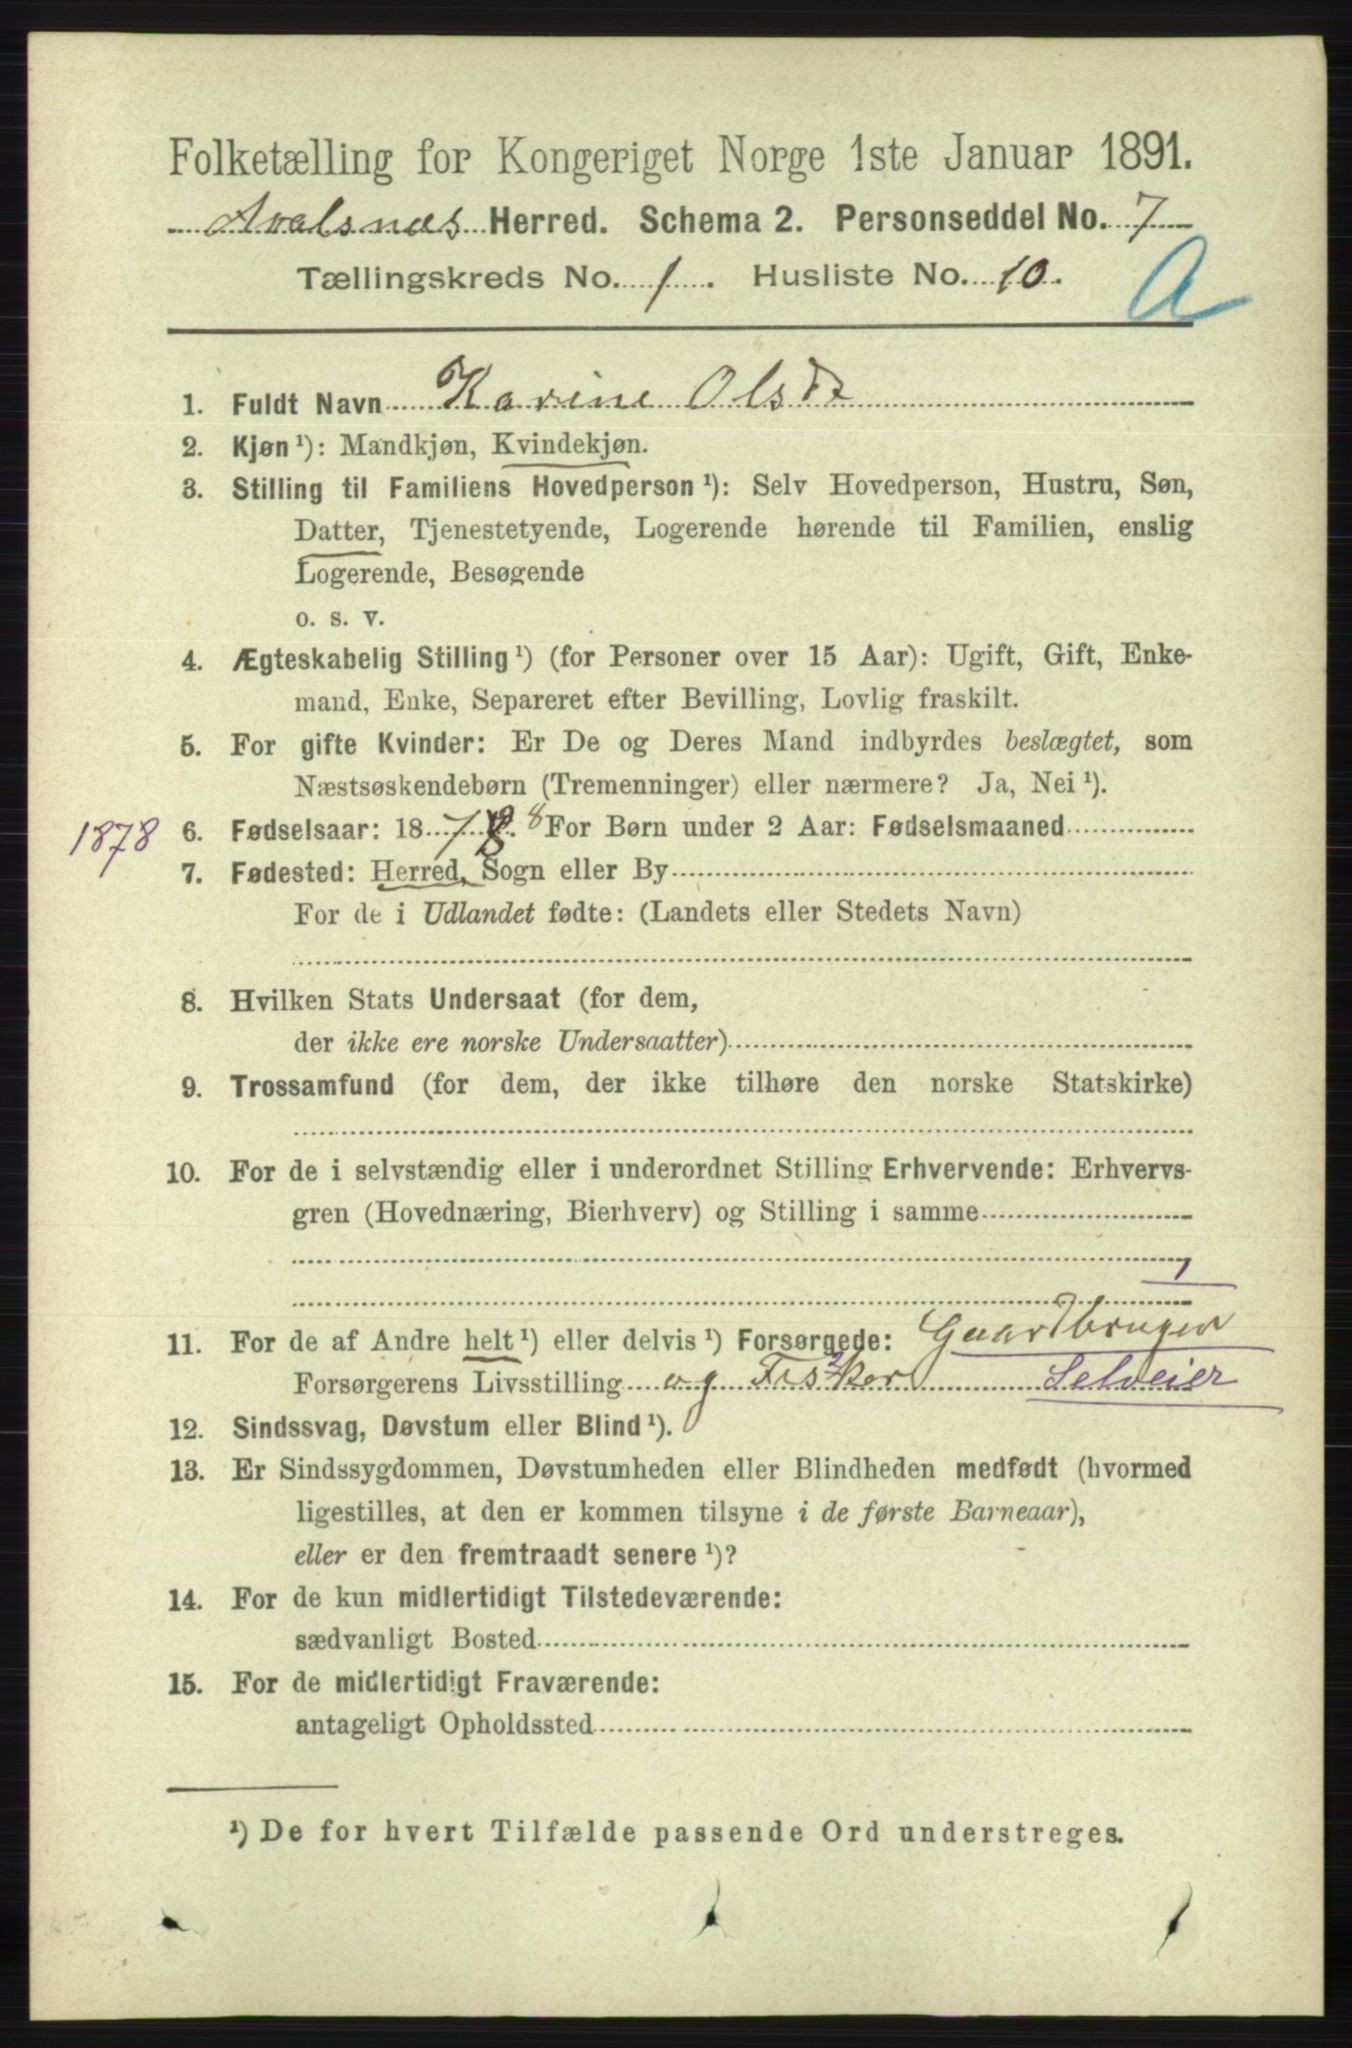 Folketælling for Kongeriget Norge 1ste Januar 1891.
Avalsnæs Herred. Schema 2. Personseddel No. 7
Tællingskreds No. 1. Husliste No. 10.
A
1. Fuldt Navn Karine Olsdr
2. Kjøn ¹): Mandkjøn, Kvindekjøn.
3. Stilling til Familiens Hovedperson ¹): Selv Hovedperson, Hustru, Søn,
Datter, Tjenestetyende, Logerende hørende til Familien, enslig
Logerende, Besøgende
o. s. v.
4. Ægteskabelig Stilling ¹) (for Personer over 15 Aar): Ugift, Gift, Enke-
mand, Enke, Separeret efter Bevilling, Lovlig fraskilt.
5. For gifte Kvinder: Er De og Deres Mand indbyrdes beslægtet, som
Næstsøskendebørn (Tremenninger) eller nærmere? Ja, Nei ¹).
1878 6. Fødselsaar: 1878 For Børn under 2 Aar: Fødselsmaaned
7. Fødested: Herred, Sogn eller By
For de i Udlandet fødte: (Landets eller Stedets Navn)
8. Hvilken Stats Undersaat (for dem,
der ikke ere norske Undersaatter)
9. Trossamfund (for dem, der ikke tilhøre den norske Statskirke)
10. For de i selvstændig eller i underordnet Stilling Erhvervende: Erhvervs-
gren (Hovednæring, Bierhverv) og Stilling i samme
1
11. For de af Andre helt ¹) eller delvis ¹) Forsørgede: Gaardbruger
Forsørgerens Livsstilling og Fisker Selveier
2
12. Sindssvag, Døvstum eller Blind ¹).
13. Er Sindssygdommen, Døvstumheden eller Blindheden medfødt (hvormed
ligestilles, at den er kommen tilsyne i de første Barneaar),
eller er den fremtraadt senere ¹)?
14. For de kun midlertidigt Tilstedeværende:
sædvanligt Bosted
15. For de midlertidigt Fraværende:
antageligt Opholdssted
¹) De for hvert Tilfælde passende Ord understreges.